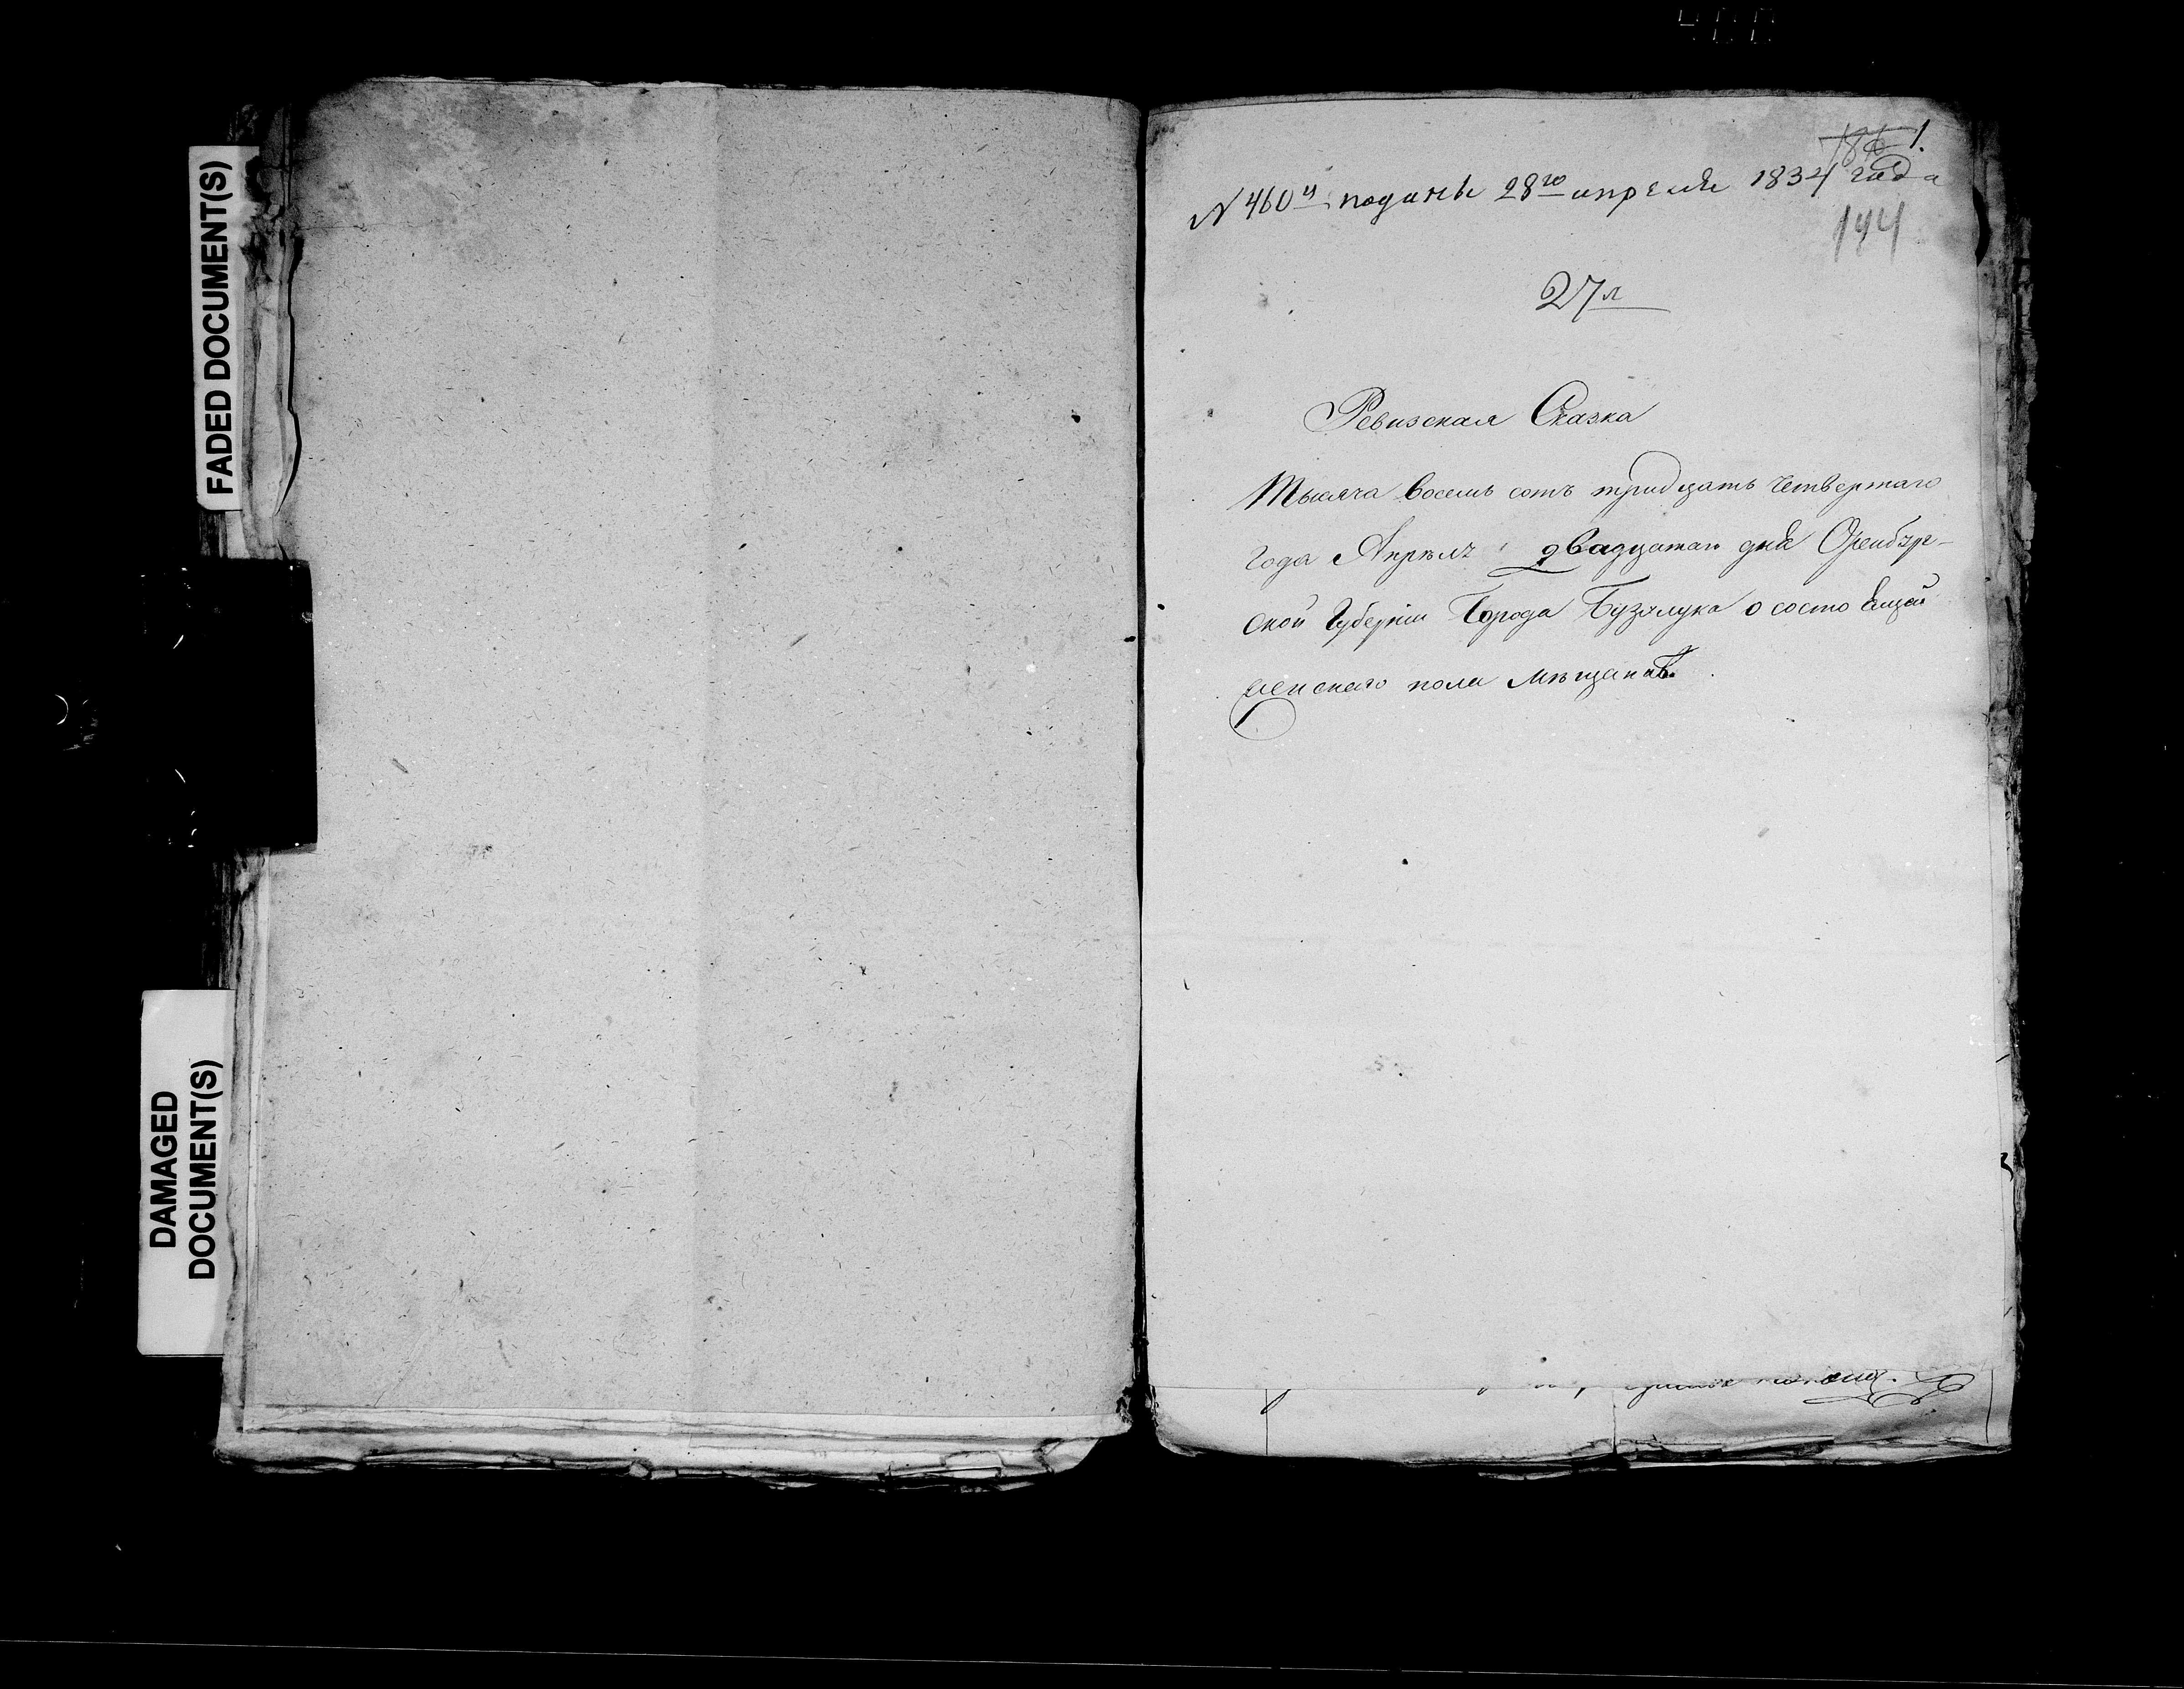 FADED DOCUMENT(S)
DAMAGED
DOCUMENT(S)
1.
№ 460й поданы 28го апреля 1834 года
144
27 л
Ревизская Сказка
Тысяча восемь сотъ тридцать четвертаго
Года Апреля двадцатаго дня Оренбург-
ской Губерніи Города Бузулука о состоящей
женскаго пола мѣщанъ.